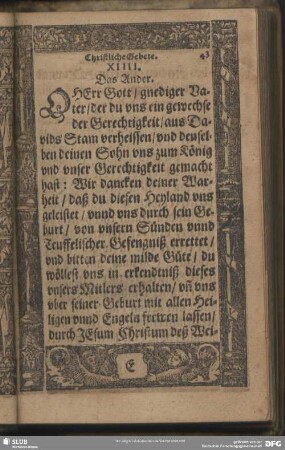 Christliche Gebete. 43
XIIII.
Das Ander.
O HErr Gott / gnediger Va-
ter / der du vns ein gewechse
der Gerechtigkeit / aus Da-
vids Stam verheissen / vnd densel-
ben deinen Sohn vns zum König
vnd vnser Gerechtigkeit gemacht
hast: Wir dancken deiner War-
heit / daß du diesen Heyland vns
geleistet / vnnd vns durch sein Ge-
burt / von vnsern Sünden vnnd
Teuffelischer Gefengniß errettet /
vnd bitten deine milde Güte / du
wöllest vns in erkendtniß dieses
vnsers Mitlers erhalten / vñ vns
vber seiner Geburt mit allen Hei-
ligen vnnd Engeln frewen lassen /
durch JEsum Christum deß Wei-
E
SLUB
DFG